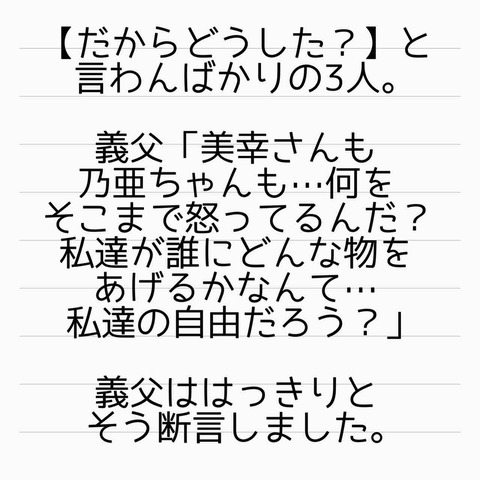 【だからどうした？】と
言わんばかりの3人。
義父「美幸さんも
乃亜ちゃんも…何を
そこまで怒ってるんだ？
私達が誰にどんな物を
あげるかなんて…
私達の自由だろう？」
義父ははっきりと
そう断言しました。